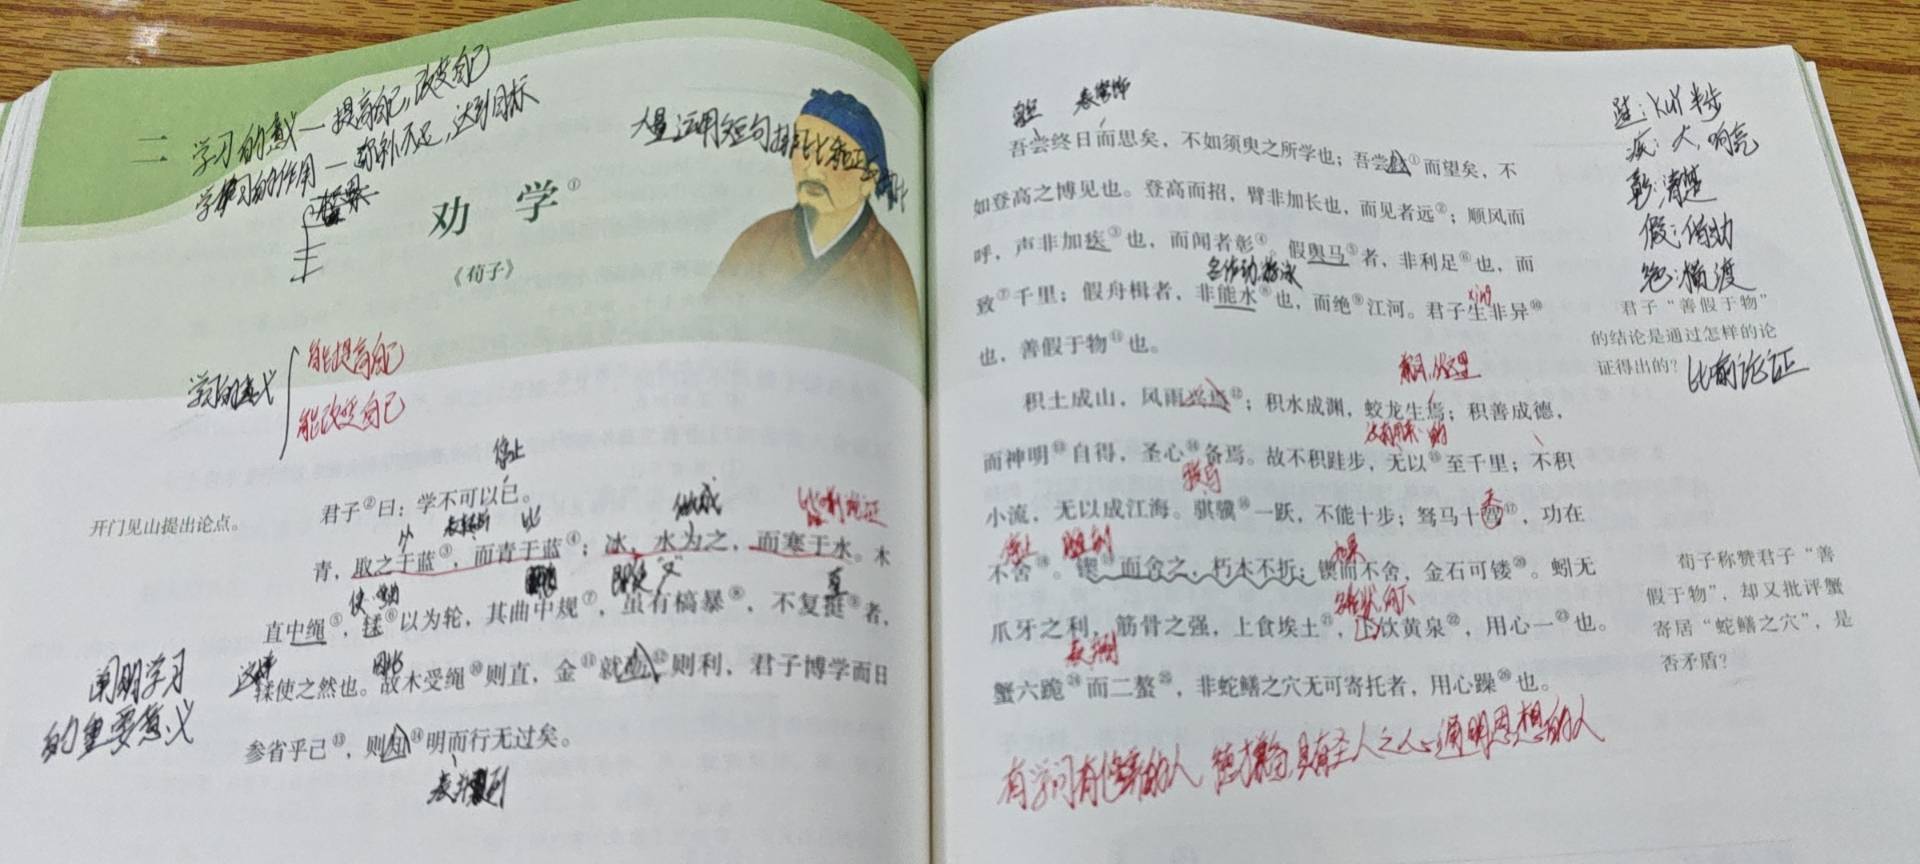 二
学习的意义—提高自己,改变自己
学习的作用—弥补不足,达到目标
大量运用短句排比
劝 学①
《荀子》
学习的意义
能提高自己
能改变自己
停止
开门见山提出论点。
君子②曰：学不可以已。
从 表转折 比
做成
青，取之于蓝③，而青于蓝④；冰，水为之，而寒于水。木
直中绳⑤，𫐓⑥以为轮，其曲中规⑦，虽有槁暴⑧，不复挺⑨者，
𫐓使之然也。故木受绳⑩则直，金⑪就砺⑫则利，君子博学而日
阐明学习
的重要意义
参省乎己⑬，则知⑭明而行无过矣。
表并列
表修饰
吾尝终日而思矣，不如须臾之所学也；吾尝跂①而望矣，不
如登高之博见也。登高而招，臂非加长也，而见者远②；顺风而
呼，声非加疾③也，而闻者彰④。假舆马⑤者，非利足⑥也，而
名作动 游泳
致⑦千里；假舟楫者，非能水⑧也，而绝⑨江河。君子生非异⑩
xìng
也，善假于物⑪也。
跬：kuǐ 半步
疾：大,响亮
彰：清楚
假：借助
绝：横渡
君子“善假于物”
的结论是通过怎样的论
证得出的？
比喻论证
积土成山，风雨兴焉⑫；积水成渊，蛟龙生焉；积善成德，
而神明⑬自得，圣心⑭备焉。故不积跬步，无以⑮至千里；不积
小流，无以成江海。骐骥⑯一跃，不能十步；驽马十驾⑰，功在
停止
不舍⑱。锲⑲而舍之，朽木不折；锲而不舍，金石可镂⑳。蚓无
如果
爪牙之利，筋骨之强，上食埃土㉑，下饮黄泉㉒，用心一㉓也。
表并列
蟹六跪㉔而二螯㉕，非蛇鳝之穴无可寄托者，用心躁㉖也。
荀子称赞君子“善
假于物”，却又批评蟹
寄居“蛇鳝之穴”，是
否矛盾？
有学问有修养的人
具有圣人之心,通明思想的人